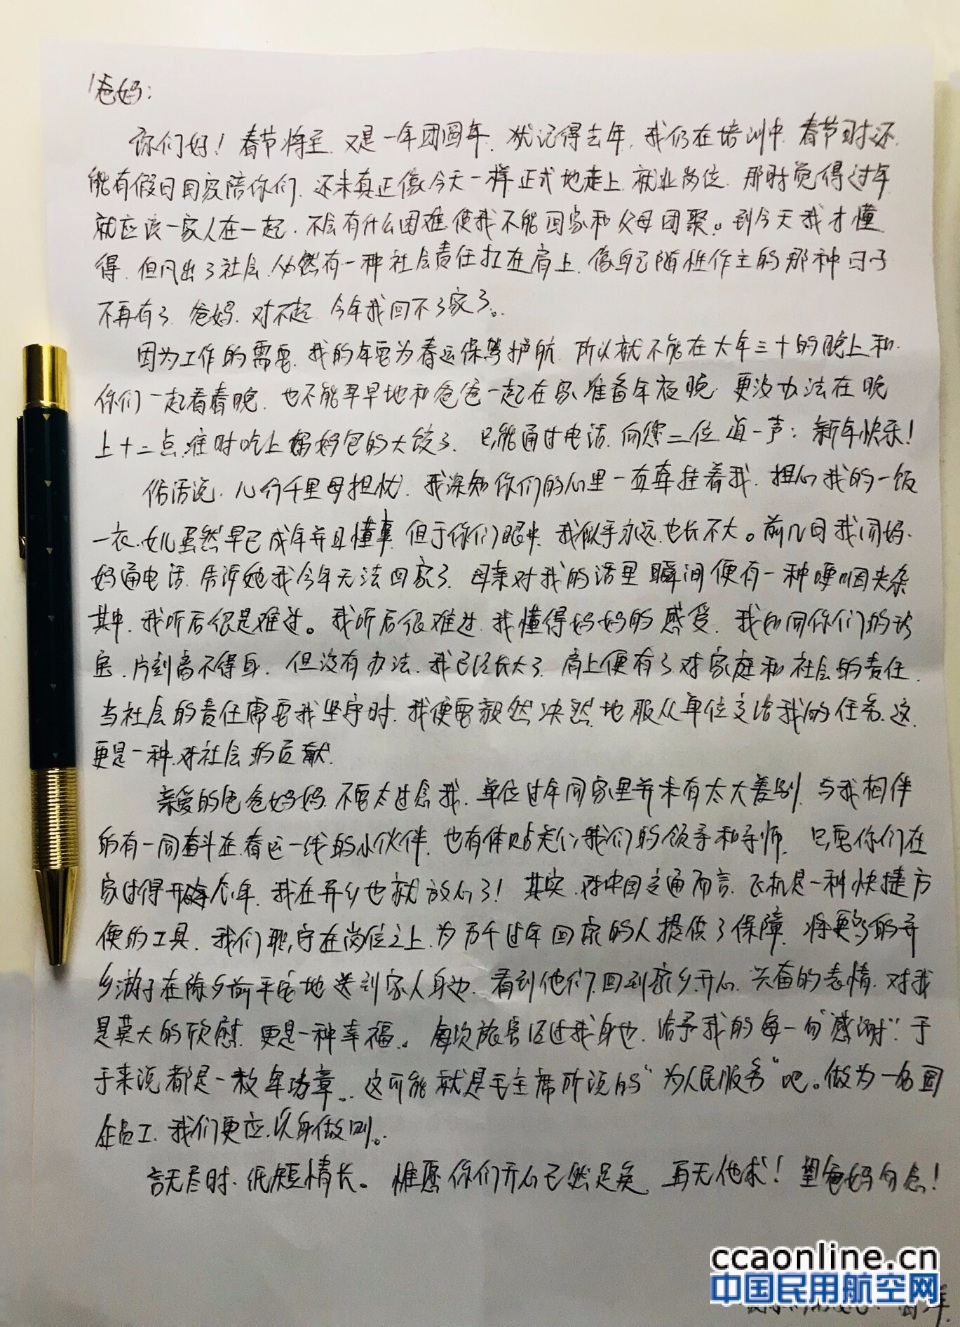 爸妈：
你们好！春节将至，又是一年团圆年，犹记得去年，我仍在培训中，春节时还
能有假日回家陪你们，还未真正像今天一样正式地走上就业岗位，那时觉得过年
就应该一家人在一起，不会有什么困难使我不能回家和父母团聚。到今天我才懂
得，但凡出了社会，必然有一种社会责任扛在肩上，像自己随性作主的那种日子
不再有了，爸妈，对不起，今年我回不了家了。
因为工作的需要，我的年要为春运保驾护航，所以就不能在大年三十的晚上和
你们一起看春晚，也不能早早地和爸爸一起在家准备年夜饭，更没办法在晚
上十二点准时吃上妈妈包的大饺子，只能通过电话，向您二位道一声：新年快乐！
俗话说，儿行千里母担忧，我深知你们的心里一直牵挂着我，担心我的一饭
一衣，女儿虽然早已成年并且懂事，但于你们眼中，我似乎永远也长不大。前几日我同妈
妈通电话，告诉她我今年无法回家了，母亲对我的话里瞬间便有一种哽咽夹杂
其中，我听后很是难过。我听后很难过，我懂得妈妈的感受，我如同你们的
，片刻离不得身，但没有办法，我已经长大了，肩上便有了对家庭和社会的责任，
当社会的责任需要我坚守时，我便要毅然决然地服从单位交给我的任务，这
更是一种对社会的贡献。
亲爱的爸爸妈妈，不要太过念我，单位过年同家里并未有太大差别，与我相伴
的有一同奋斗在春运一线的小伙伴，也有体贴关心我们的领导和导师，只要你们在
家过得开年，我在异乡也就放心了！其实，对中国交通而言，飞机是一种快捷方
便的工具，我们职守在岗位之上，为万千过年回家的人提供了保障，将更多的异
乡游子在除夕前平安地送到家人身边，看到他们回到家乡开心、兴奋的表情，对我
是莫大的欣慰，更是一种幸福。每次旅客经过我身边，给予我的每一句“感谢”于
于来说都是一枚军功章，这可能就是毛主席所说的“为人民服务”吧。做为一名国
企员工，我们更应以身做则。
言无尽时，纸短情长。惟愿你们开心已然足矣，再无他求！望爸妈勿念！
ccaonline.cn
中国民用航空网